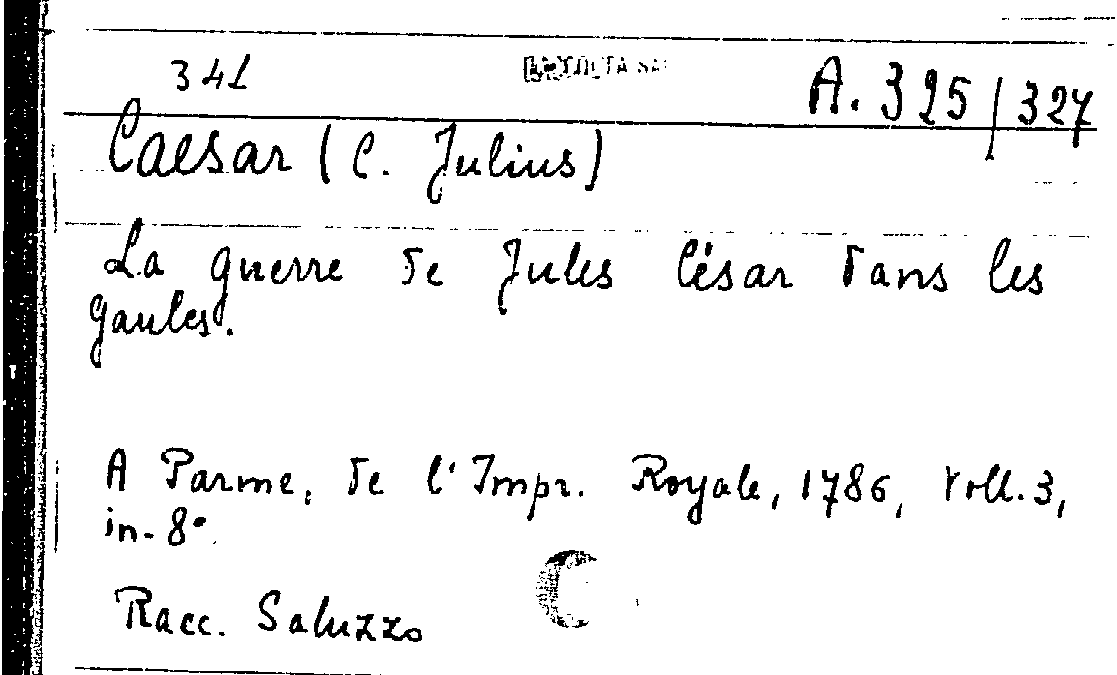 341 A. 325/327
Caesar (C. Julius)
La guerre de Jules César dans les
gaules.
A Parme, de l'Impr. Royale, 1786, Voll. 3,
in-8°
Racc. Saluzzo